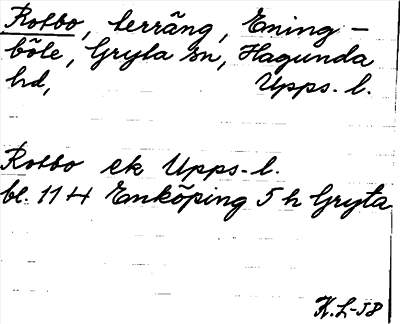 Rotbo, terräng, Ening-
böle, Gryta sn, Hagunda
hd, Upps. l.
Rotbo ek Upps. l.
bl. 11 H Enköping 5 h Gryta
K.L-58